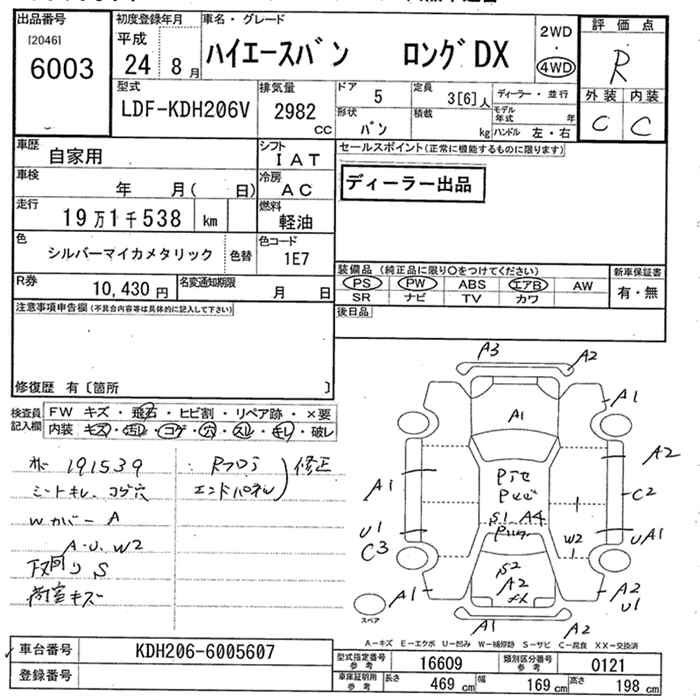 出品番号
[2046]
6003
初度登録年月
平成
24 8月
車名・グレード
ハイエースバン ロングDX
2WD
・
4WD
評価点
R
外装 内装
C C
型式
LDF-KDH206V
排気量
2982
CC
ドア
5
定員
3[6]人
ディーラー・並行
形状
バン
積載
kg
モデル年式 年
ハンドル 左・右
車歴
自家用
シフト
IAT
セールスポイント(正常に機能するものに限ります)
ディーラー出品
車検
年 月( 日)
冷房
AC
走行
19万1千538 km
燃料
軽油
色
シルバーマイカメタリック
色替
色コード
1E7
装備品(純正品に限り○をつけてください)
新車保証書
PS PW ABS エアB AW
有・無
SR ナビ TV カワ
R券
10,430円
名変通知期限
月 日
後日品
注意事項申告欄(不具合内容等は具体的に記入して下さい)
修復歴 有〔箇所 〕
検査員記入欄
FW キズ・飛石・ヒビ割・リペア跡・×要
内装 キズ・汚れ・コゲ・穴・スレ・キレ・破レ
191539
シートキレ、コゲ穴
Wカバー A
A.U.W2
下回りS
荷室キズ
Rフロア
エンドパネル
修正
A3
A2
A1
A1
A2
A1
C2
U1
C3
UA1
S1 A4
W2
S2
A2
××
A1
A2
U1
A1
A2
スペア
A-キズ E-エクボ U-凹み W-補修跡 S-サビ C-腐食 XX-交換済
車台番号
KDH206-6005607
登録番号
型式指定番号
参考
16609
類別区分番号
参考
0121
車庫証明用
参考
長さ
469cm
幅
169cm
高さ
198cm